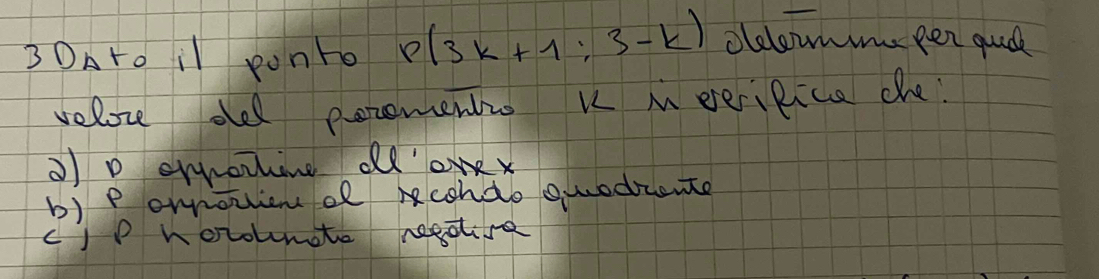 3 Dato il punto P(3k+1; 3-k) determina per quale
valore del paramentro K si verifica che:
a) P appartiene all'asse x
b) P appartiene al secondo quadrante
c) P ordinata negativa